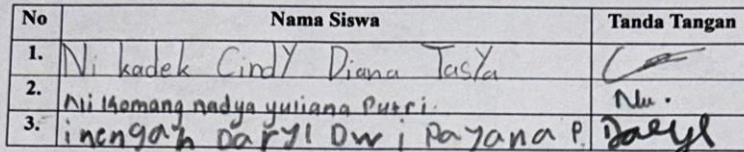 No Nama Siswa Tanda Tangan
1. Ni kadek Cindy Diana Tasya
2. Ni Komang nadya yuliana Putri. Nu.
3. i nengah Daryl Dwi Payana P. Daryl